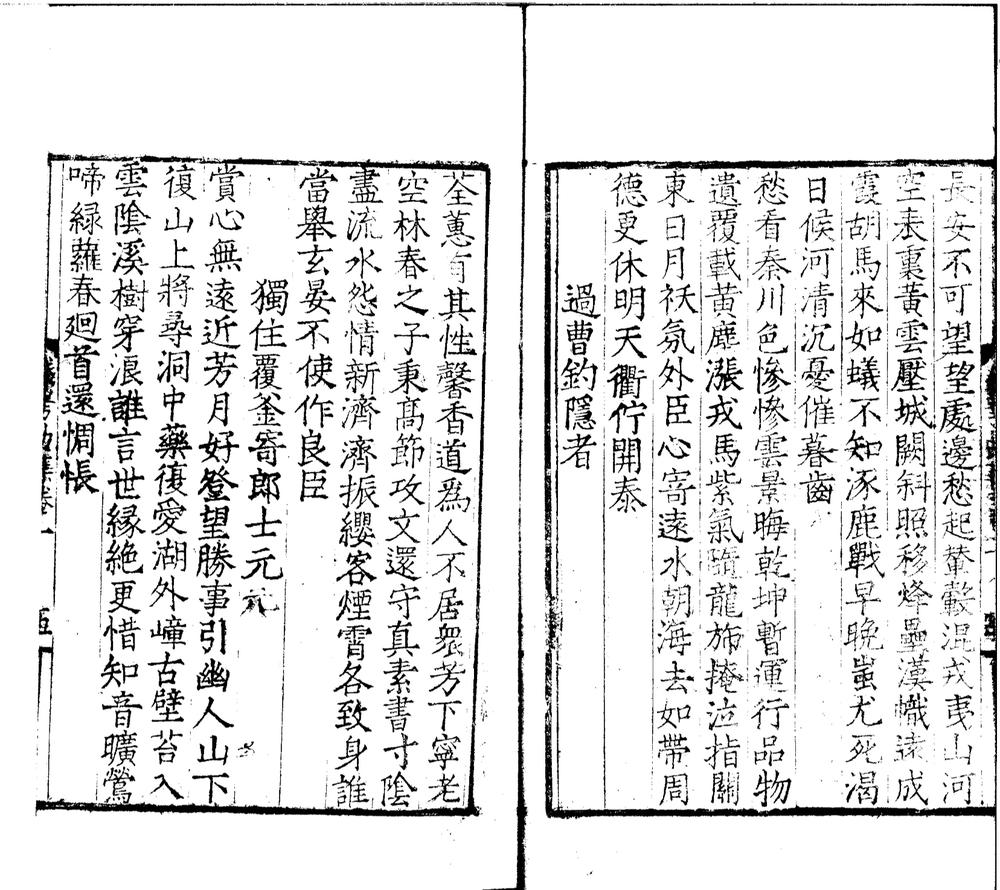 長安不可望望處邊愁起輦轂混戎夷山河
空表裏黄雲壓城闕斜照移烽壘漢幟遠成
霞胡馬來如蟻不知涿鹿戰早晚蚩尤死渴
日候河清沉憂催暮齒
愁看秦川色慘慘雲景晦乾坤暫運行品物
遺覆載黄塵漲戎馬紫氣隨龍斾掩泣指關
東日月祅氛外臣心寄遠水朝海去如帶周
德更休明天衢佇開泰
過曹釣隱者
荃蕙有其性馨香道爲人不居衆芳下寧老
空林春之子秉髙節攻文還守真素書寸陰
盡流水怨情新濟濟振纓客煙霄各致身誰
當舉玄晏不使作良臣
獨住覆釜寄郎士元
賞心無遠近芳月好登望勝事引幽人山下
復山上將尋洞中藥復愛湖外嶂古壁苔入
雲陰溪樹穿浪誰言世縁絶更惜知音曠鶯
啼綠蘿春廻首還惆悵
五